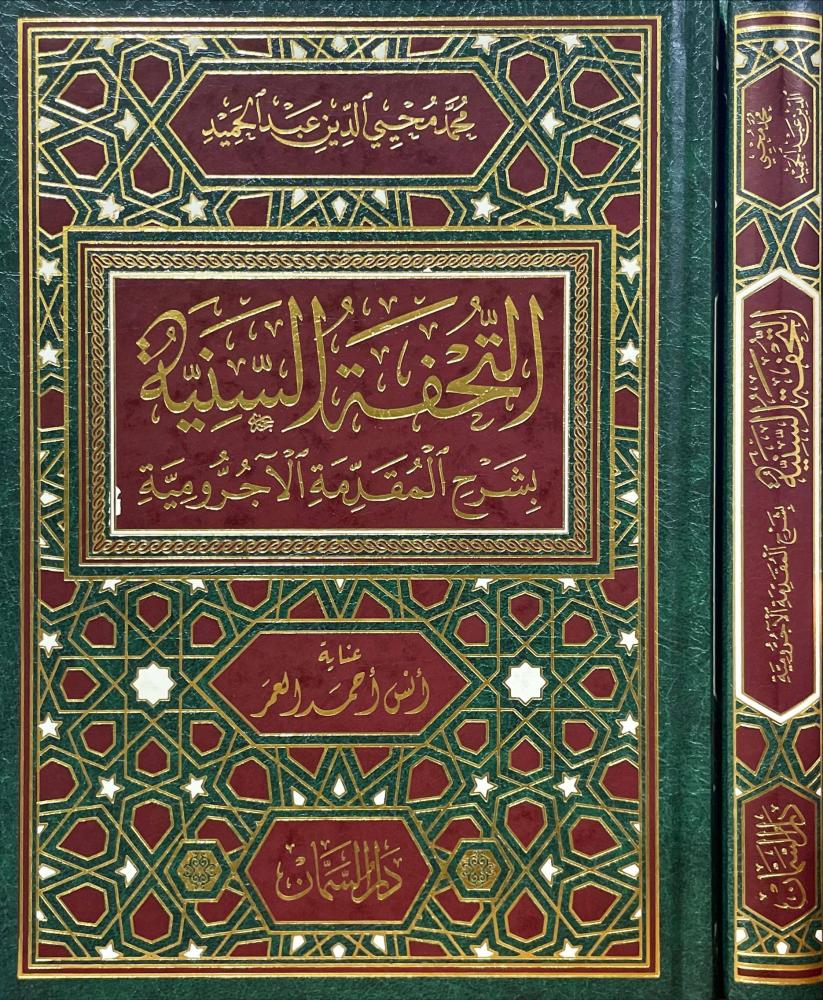 مُحَمَّد مُحْيِي الدِّين عَبْد الحَمِيْد
التُّحْفَةُ السَّنِيَّةُ
بِشَرْحِ المُقَدِّمَةِ الآجُرُّومِيَّةِ
عناية
أنس أحمد العمر
دَارُ السَّمَّان
محمّد محيي
الدّين عبد الحميد
التُّحْفَةُ السَّنِيَّةُ
بِشَرْحِ المُقَدِّمَةِ الآجُرُّومِيَّةِ
دَارُ السَّمَّان